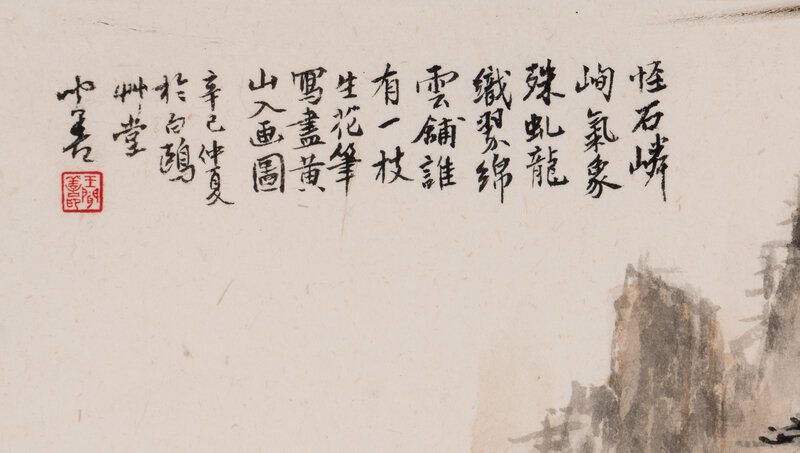 怪石嶙
峋氣象
殊虬龍
織翠綿
雲鋪誰
有一枝
生花筆
寫盡黃
山入画圖
辛巳仲夏
於白鷗
艸堂
善